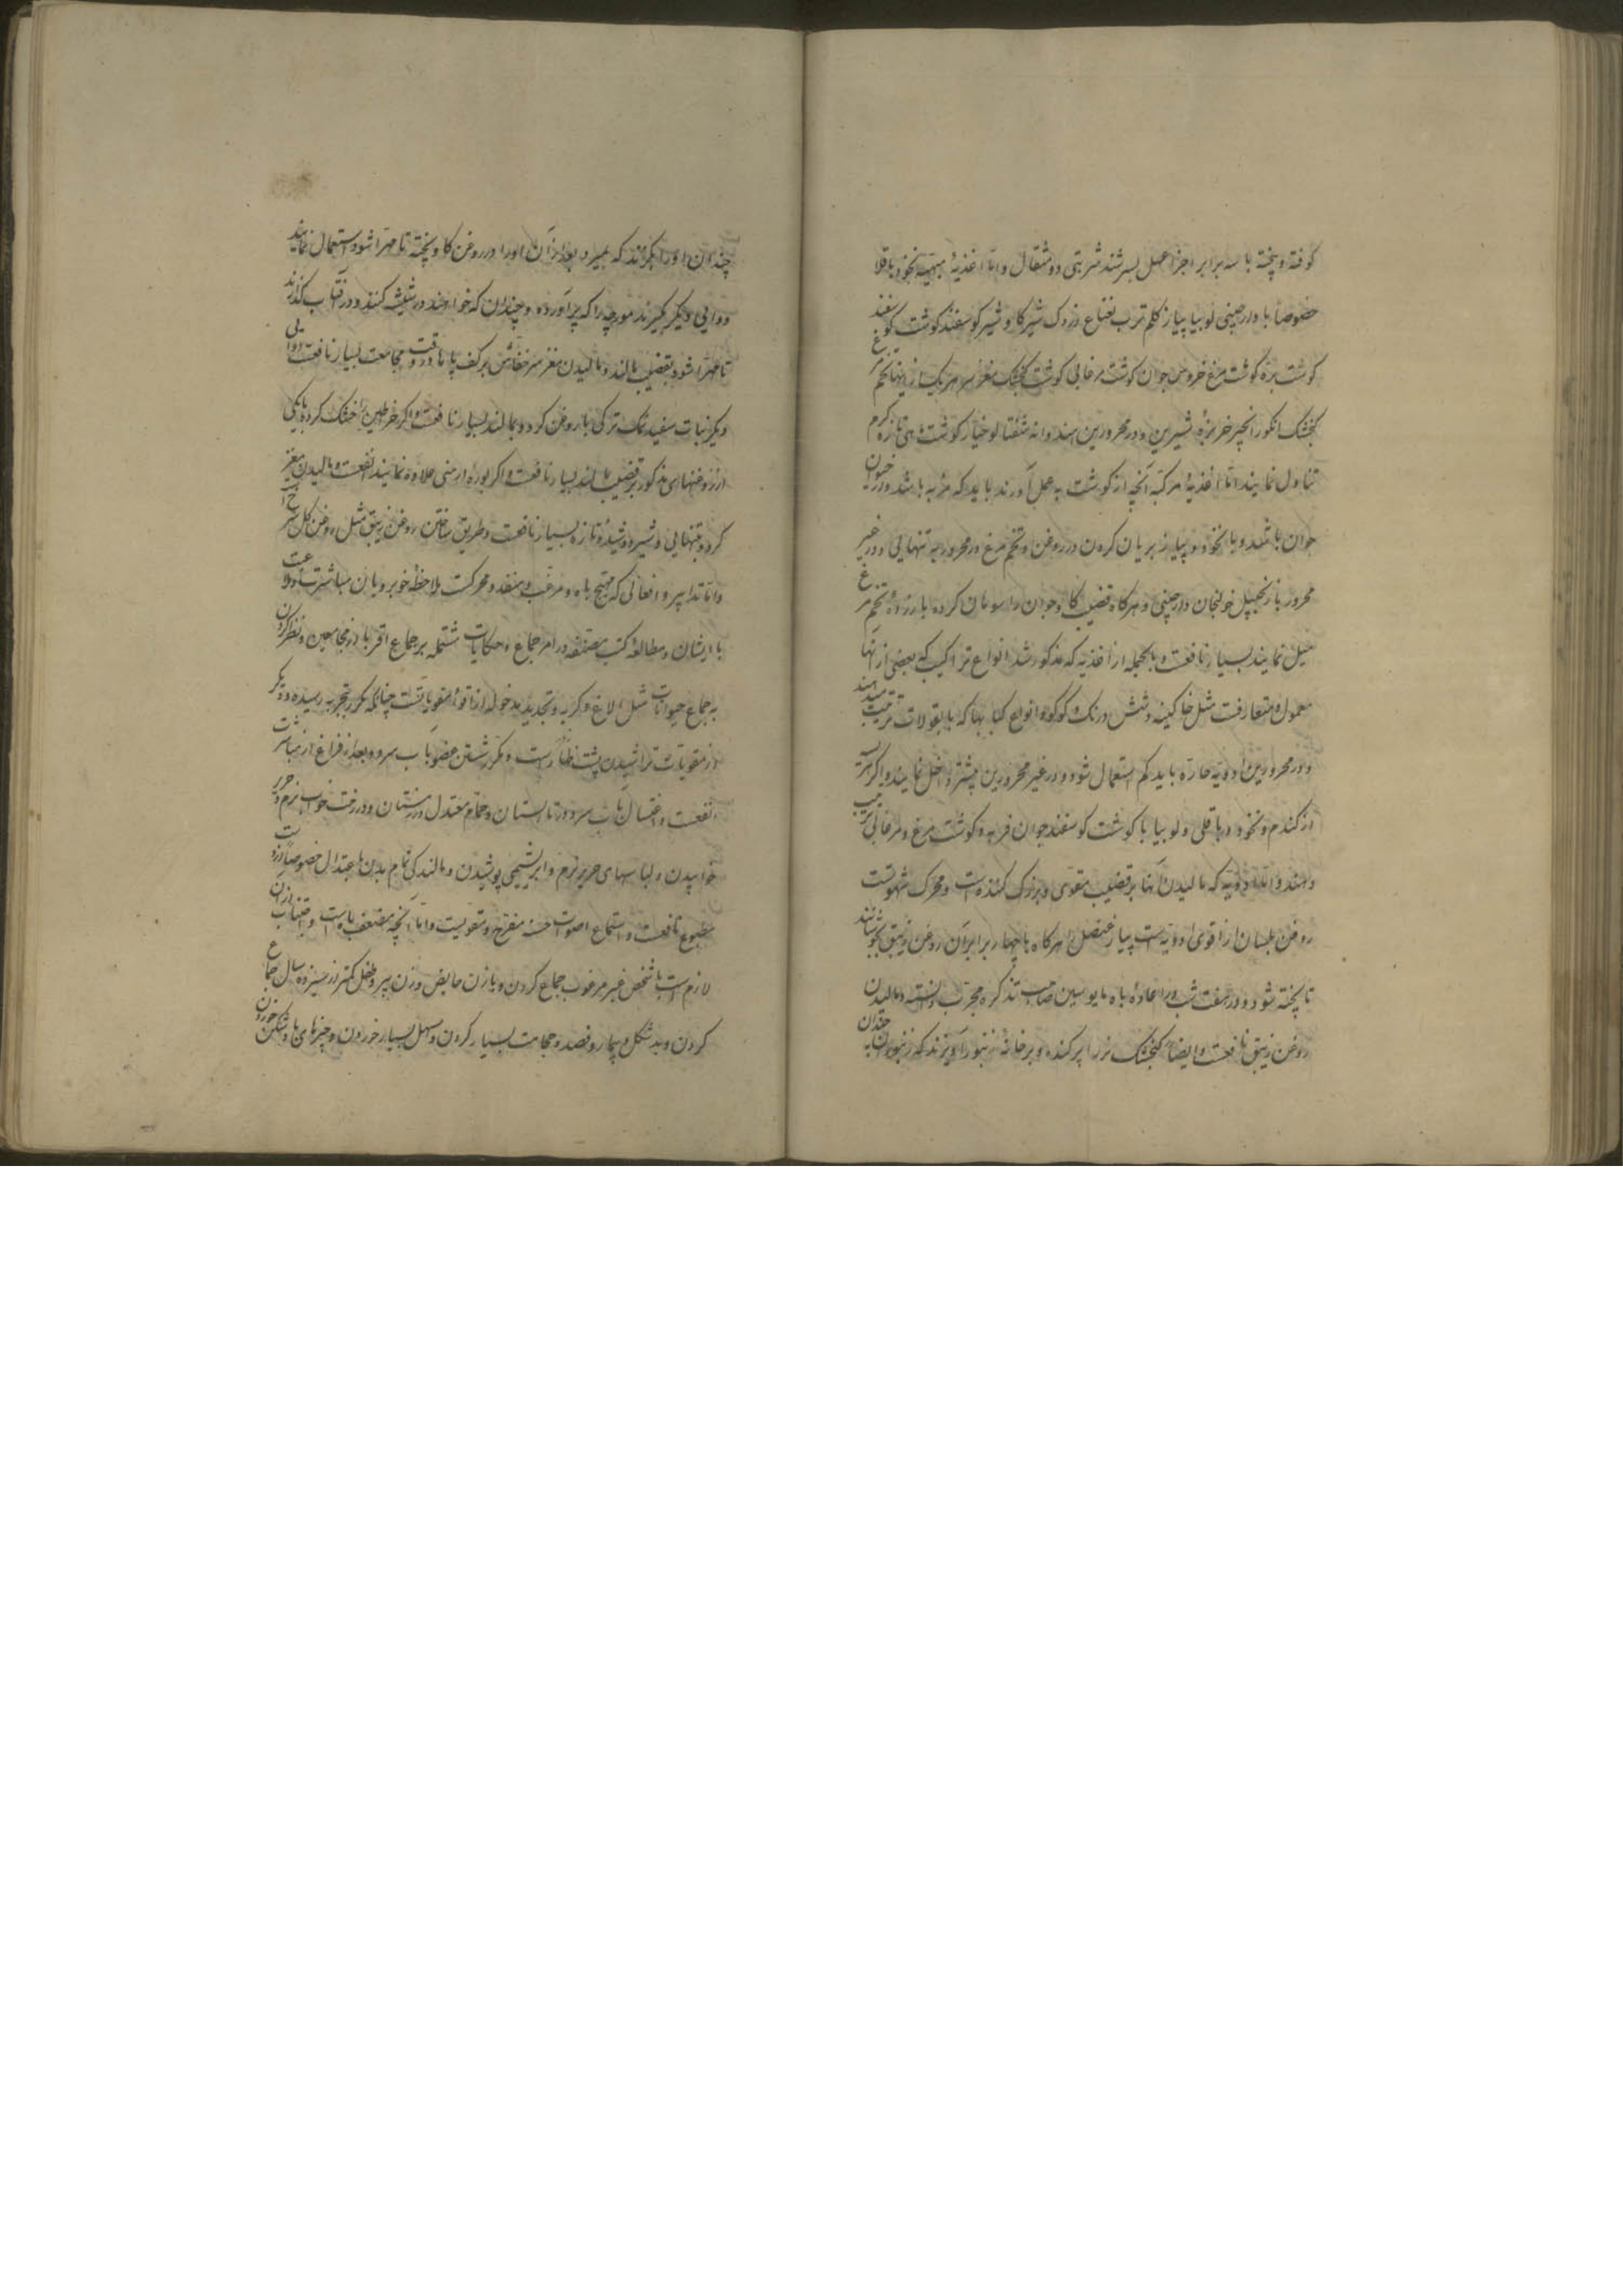 کوفته و پخته با سه برابر اجزا عسل بسرشند شربتی دو مثقال و اما اغذیهٔ مبهیه نخود باقلا
خصوصا با دارچینی لوبیا پیاز کلم ترب نعناع زردک شیر کاو شیر کوسفند کوشت کوسفند
کوشت بره کوشت مرغ خروس جوان کوشت مرغابی کوشت کنجشک مغز سر هر یک از اینها تخم مرغ
کنجشک انکور انجیر خربزهٔ شیرین و در محرورین هندوانه شفتالو خیار کوشت ماهی تازه کرم
تناول نمایند اما اغذیهٔ مرکبه آنچه از کوشت به عمل آورند باید که فربه باشد و از حیوان
جوان باشد و با نخود و پیاز بریان کردن در روغن و تخم مرغ در محرور به تنهایی و در غیر
محرور با زنجبیل خولنجان دارچینی و هرکاه قضیب کاو جوان را سوهان کرده با زردهٔ تخم مرغ
میل نمایند بسیار نافعست و بالجمله از اغذیه که مذکور شد انواع تراکیب که بعضی از آنها
معمول و متعارفست مثل خاکینه و شش درنک و کوکو و انواع کبابها که با بقولات ترتیب میدهند
و در محرورین ادویهٔ حاره باید کم استعمال شود و در غیر محرورین بیشتر داخل نمایند و اکر هریسه
از کندم و نخود و باقلی و لوبیا با کوشت کوسفند جوان فربه و کوشت مرغ و مرغابی ترتیب
دهند و اما ادویه که مالیدن آنها بر قضیب مقوی و بزرک کننده است و محرک شهوتست
روغن بلسان از اقوی ادویه است پیاز عنصل را هرکاه با چهار برابر آن روغن زنبق بجوشانند
تا پخته شود و در هفت شب برا اعادهٔ باه مایوسین صاحب تذکره مجرب دانسته و مالیدن
روغن زنبق نافعست و ایضا کنجشک نر را پر کنده و بر خانهٔ زنبور آویزند که زنبوران به چندان
چندان او را بکزند که بمیرد بعد از آن او را در روغن کاو پخته تا مهرا شود استعمال نمایند
دوایی دیکر بکیرند مورچه را که پر آورده و چندان که خواهند در شیشه کنند و در آفتاب کذارند
تا مهرا شود بقضیب بمالند و مالیدن مغز سر خفاش بر کف پاها در وقت مجامعت بسیار نافعست دوایی
دیکر نبات سفید نمک ترکی با روغن کردو بمالند بسیار نافعست و اکر خراطین را خشک کرده با یکی
از روغنهای مذکور بر قضیب بمالند بسیار نافعست و اکر بوره ارمنی علاوه نمایند انفعست و مالیدن مغز
کردو بتنهایی و شیر دوشیدهٔ تازه بسیار نافعست و طریق ساختن روغن زنبق مثل روغن کل سرخ است
و اما تدابیر و افعالی که مهیج باه و مرغب و منفذ و محرکست ملاحظهٔ خوبرویان مباشرت و ملاعبت
با ایشان و مطالعهٔ کتب مصنفه در امر جماع و حکایات مشتمله بر جماع اقربا از مجامعین و نظر کردن
به جماع حیوانات مثل الاغ و کربه و تجدید مدخوله از اقوای مقویاتست چنانکه مکرر بتجربه رسیده و دیکر
از مقویات تراشیدن پشت ظهار است و مکرر شستن عضو بآب سرد و بعد از فراغ از مباشرت
انفعست و اغتسال بآب سرد در تابستان و حمام معتدل در زمستان و در رخت خواب نرم و حریر
خوابیدن و لباسهای حریر نرم و ابریشمی پوشیدن و مالندکی تمام بدن باعتدال خصوصا از دست
مطبوع نافعست و استماع اصوات حسنه مفرح و مقویست و اما آنچه مضعف باه است و اجتناب از آن
لازم است با شخص غیر مرغوب جماع کردن و با زن حایض و زن پیر و طفل کمتر از سیزده سال جماع
کردن و بد شکل و بیمار و فصد و حجامت بسیار کردن و مسهل بسیار خوردن و چیزهای باد شکن خوردن